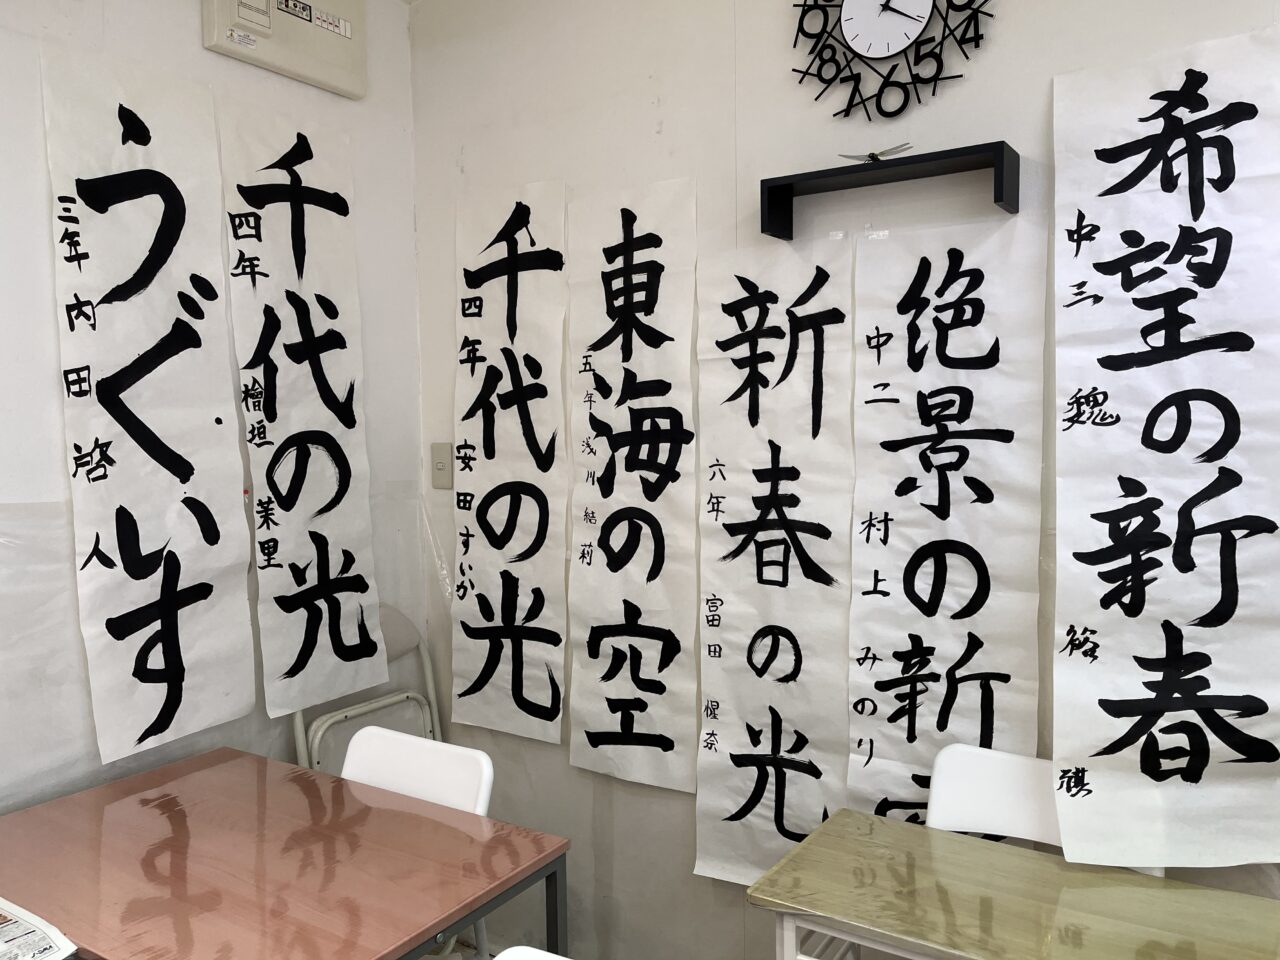 うぐいす
三年 内田 啓人
千代の光
四年 檜垣 茉里
千代の光
四年 安田すいか
東海の空
五年 浅川結莉
新春の光
六年 富田 惺奈
絶景の新
中二 村上 みのり
希望の新春
中三 魏 裕祺
4
5
6
7
8
9